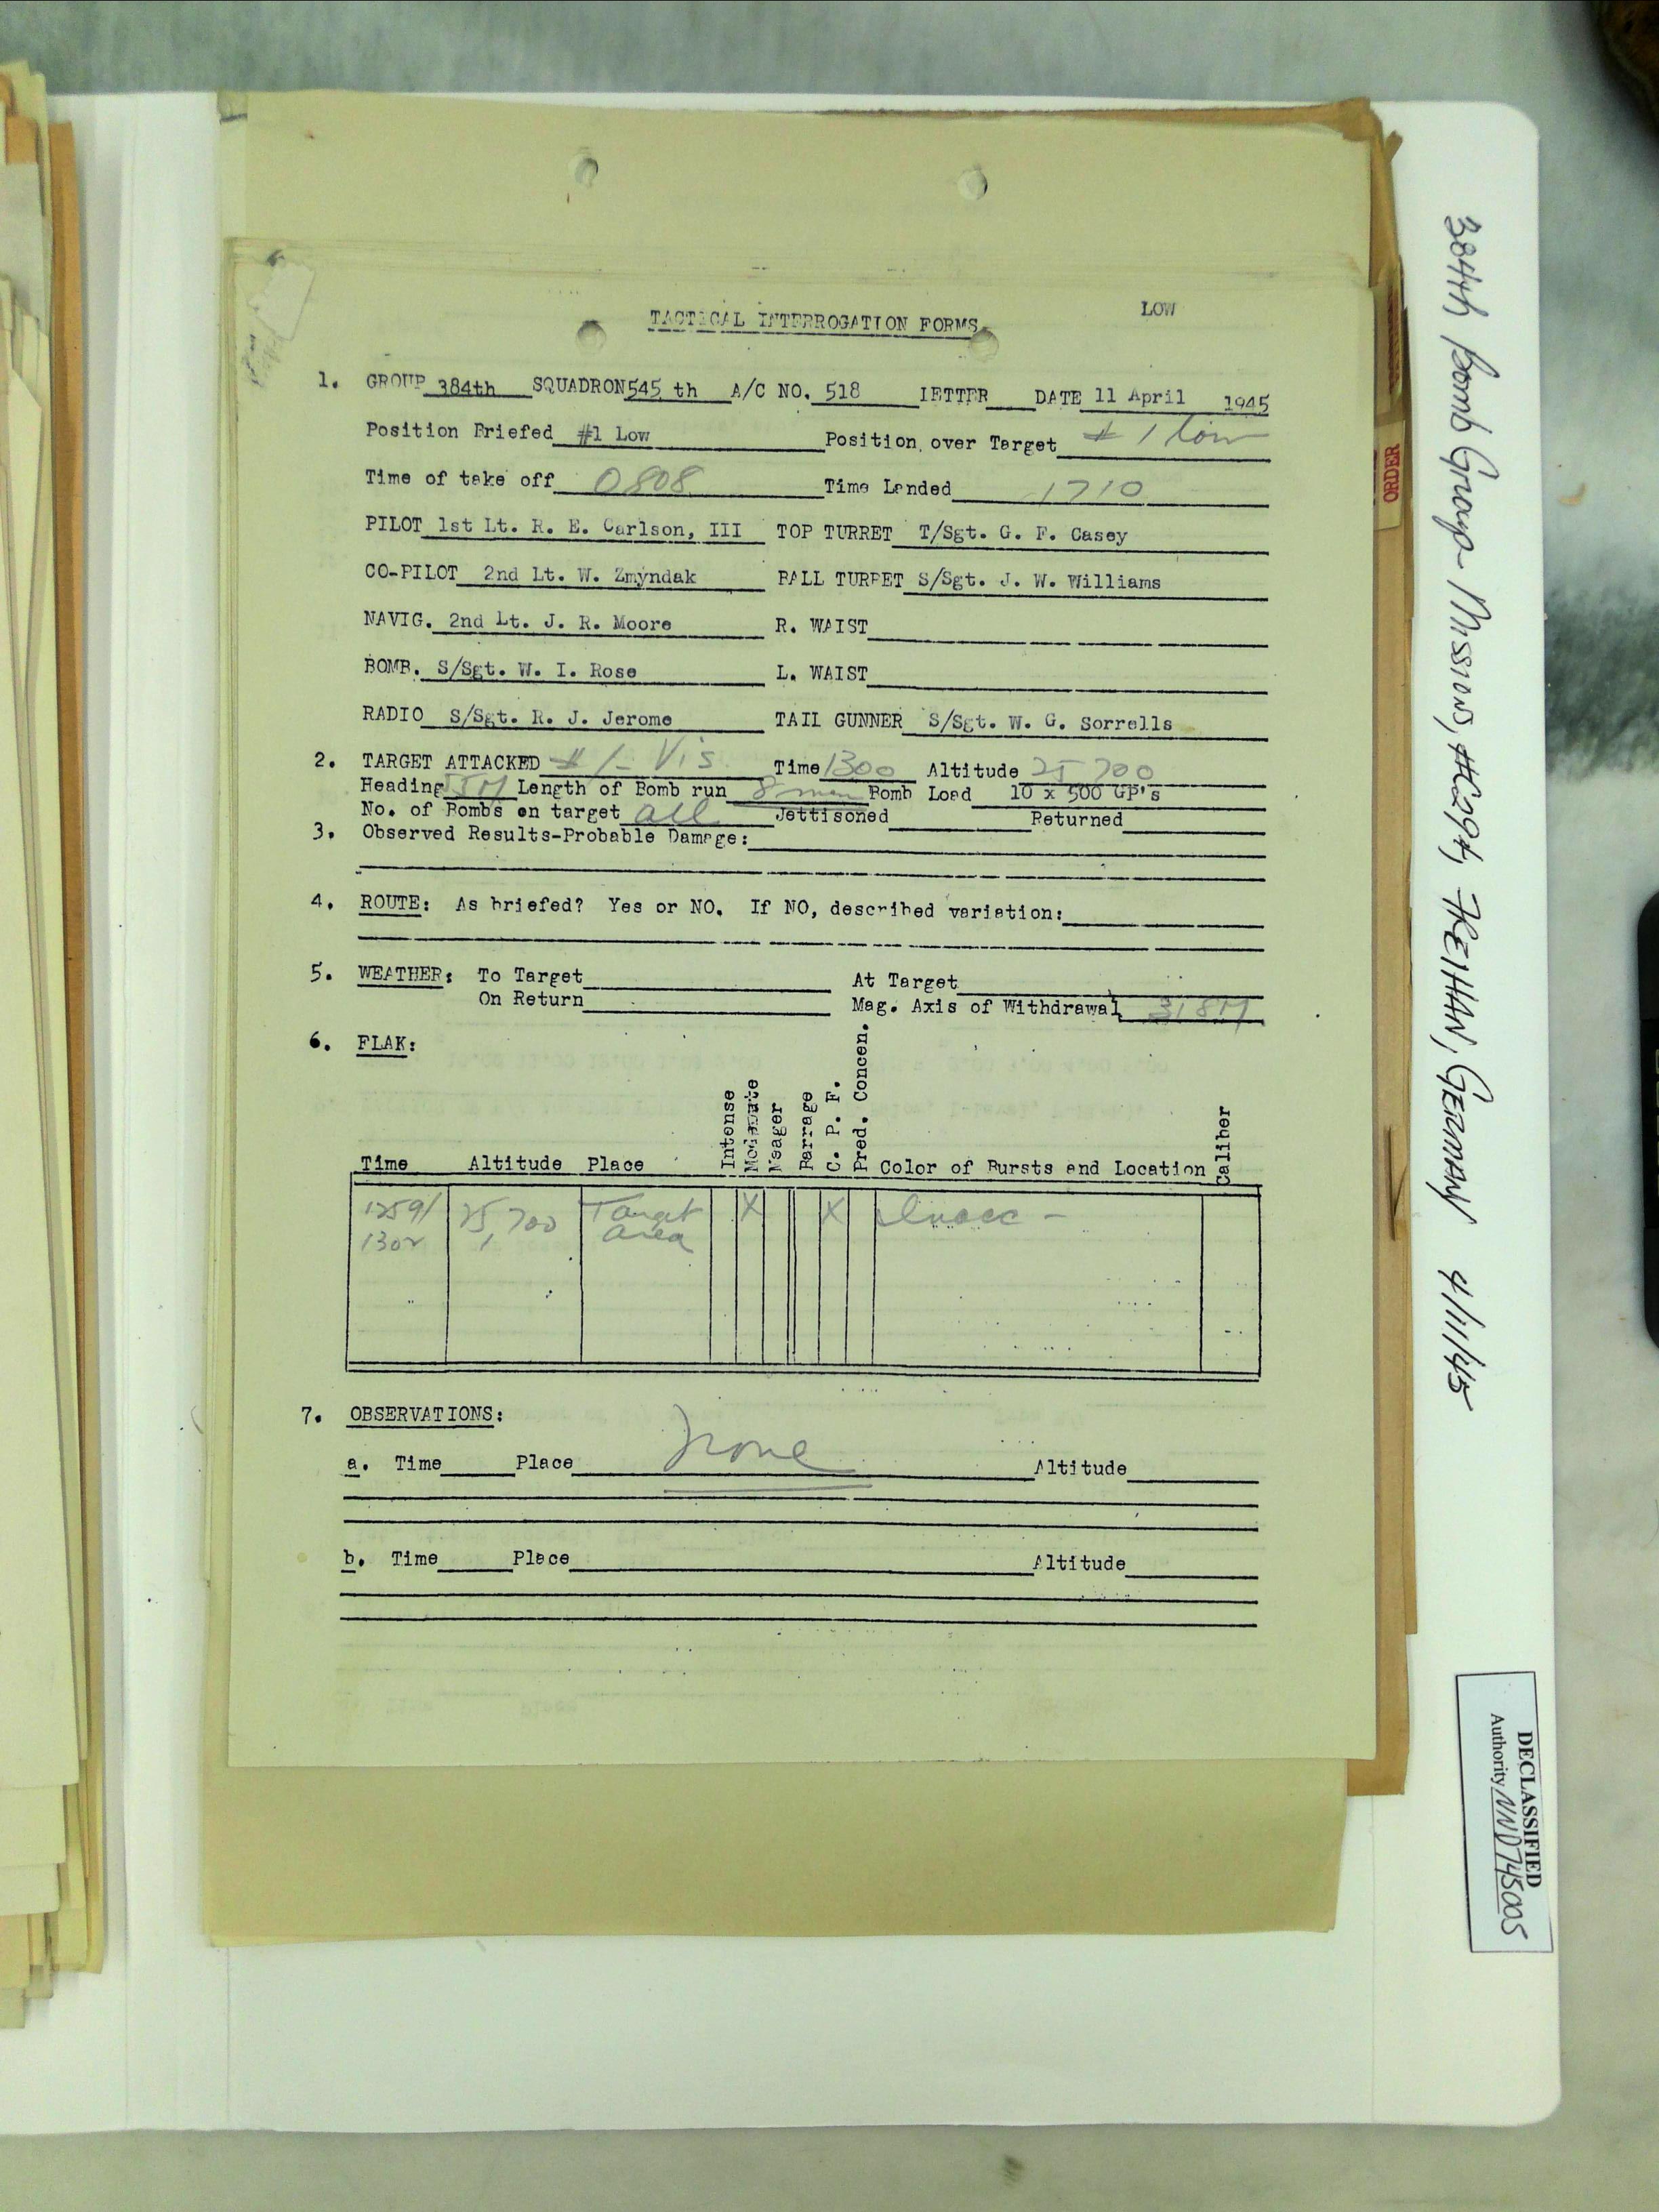 LOW
TACTICAL INTERROGATION FORMS
1. GROUP 384th SQUADRON 545 th A/C NO. 518 LETTER DATE 11 April 1945
Position Briefed #1 Low Position over Target # 1 low
Time of take off 0808 Time Landed 1710
PILOT 1st Lt. R. E. Carlson, III TOP TURRET T/Sgt. G. F. Casey
CO-PILOT 2nd Lt. W. Zmyndak BALL TURRET S/Sgt. J. W. Williams
NAVIG. 2nd Lt. J. R. Moore R. WAIST
BOMB. S/Sgt. W. I. Rose L. WAIST
RADIO S/Sgt. R. J. Jerome TAIL GUNNER S/Sgt. W. G. Sorrells
2. TARGET ATTACKED # 1 - Vis Time 1300 Altitude 25 700
Heading 55M Length of Bomb run 8 min Bomb Load 10 x 500 GP's
No. of Bombs on target all Jettisoned Returned
3. Observed Results-Probable Damage:
4. ROUTE: As briefed? Yes or NO. If NO, described variation:
5. WEATHER: To Target At Target
On Return Mag. Axis of Withdrawal 318M
6. FLAK:
Time Altitude Place Intense Moderate Meager Barrage C. P. F. Pred. Concen. Color of Bursts and Location Caliber
1259/ 25,700 Target X X Inacc -
1302 area
7. OBSERVATIONS:
a. Time Place None Altitude
b. Time Place Altitude
ORDER
384th Bomb Group Mission, #294, FREIHAN, GERMANY 4/11/45
DECLASSIFIED
Authority NND745005